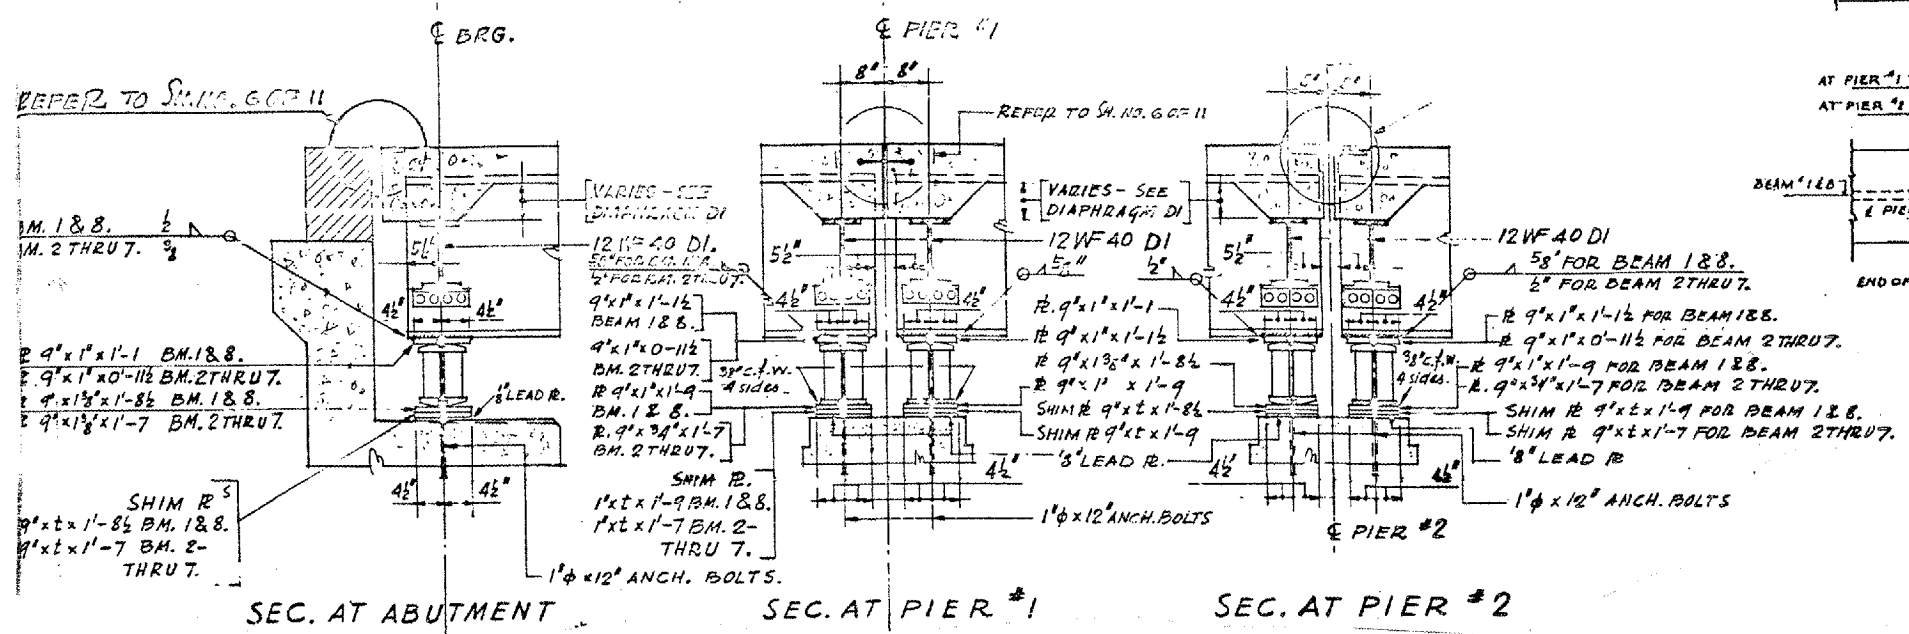 ℄ BRG.
REFER TO SH. NO. 6 OF 11
BM. 1 & 8. 1/2
BM. 2 THRU 7. 3/8
5½"
VARIES - SEE
DIAPHRAGM D1
12 WF 40 D1.
5/8" FOR BM. 1 & 8
½" FOR BM. 2 THRU 7.
4½" 4½"
℞ 9" x 1" x 1'-1 BM. 1 & 8.
℞ 9" x 1" x 0'-11½ BM. 2 THRU 7.
℞ 9" x 1⅜" x 1'-8½ BM. 1 & 8.
℞ 9" x 1⅜" x 1'-7 BM. 2 THRU 7.
⅛" LEAD ℞.
SHIM ℞ S
9" x t x 1'-8½ BM. 1 & 8.
9" x t x 1'-7 BM. 2-
THRU 7.
4½" 4½"
1"φ x 12" ANCH. BOLTS.
SEC. AT ABUTMENT
℄ PIER #1
8" 8"
REFER TO SH. NO. 6 OF 11
VARIES - SEE
DIAPHRAGM D1
5½"
12 WF 40 D1
5/8"
½"
4½" 4½"
9" x 1" x 1'-1½
BEAM 1 & 8.
9" x 1" x 0-11½
BM. 2 THRU 7.
℞ 9" x 1" x 1'-9
BM. 1 & 8.
℞. 9" x ¾" x 1'-7
BM. 2 THRU 7.
3/8" C.F.W.
4 sides.
SHIM ℞.
1" x t x 1'-9 BM. 1 & 8.
1" x t x 1'-7 BM. 2-
THRU 7.
℞. 9" x 1" x 1'-1
℞ 9" x 1" x 1'-1½
℞ 9" x 1⅜" x 1'-8½
℞ 9" x 1" x 1'-9
SHIM ℞ 9" x t x 1'-8½
SHIM ℞ 9" x t x 1'-9
⅛" LEAD ℞.
4½"
1"φ x 12" ANCH. BOLTS
SEC. AT PIER #1
5½"
12 WF 40 D1
5/8" FOR BEAM 1 & 8.
½" FOR BEAM 2 THRU 7.
4½" 4½"
℞ 9" x 1" x 1'-1½ FOR BEAM 1 & 8.
℞ 9" x 1" x 0'-11½ FOR BEAM 2 THRU 7.
3/8" C.F.W.
4 sides.
℞ 9" x 1" x 1'-9 FOR BEAM 1 & 8.
℞. 9" x ¾" x 1'-7 FOR BEAM 2 THRU 7.
SHIM ℞ 9" x t x 1'-9 FOR BEAM 1 & 8.
SHIM ℞ 9" x t x 1'-7 FOR BEAM 2 THRU 7.
⅛" LEAD ℞
4½" 4½"
1"φ x 12" ANCH. BOLTS
℄ PIER #2
SEC. AT PIER #2
AT PIER #1
AT PIER #2
BEAM #1 & 8
℄ PIER
END OF